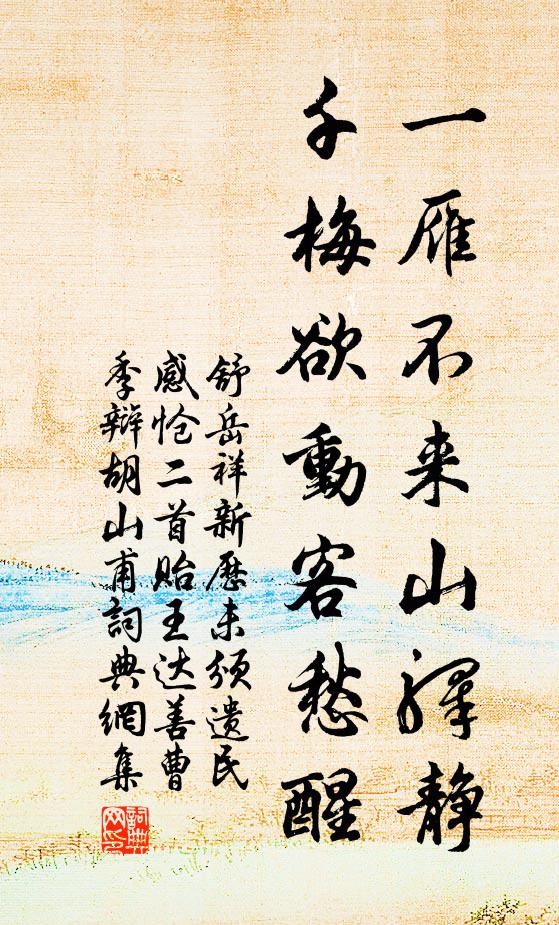 一雁不来山驿静
千梅欲動客愁醒
舒岳祥新歷未颁遗民
感怆二首貽王达善曹
季辩胡山甫詞典網集
詞典
网印